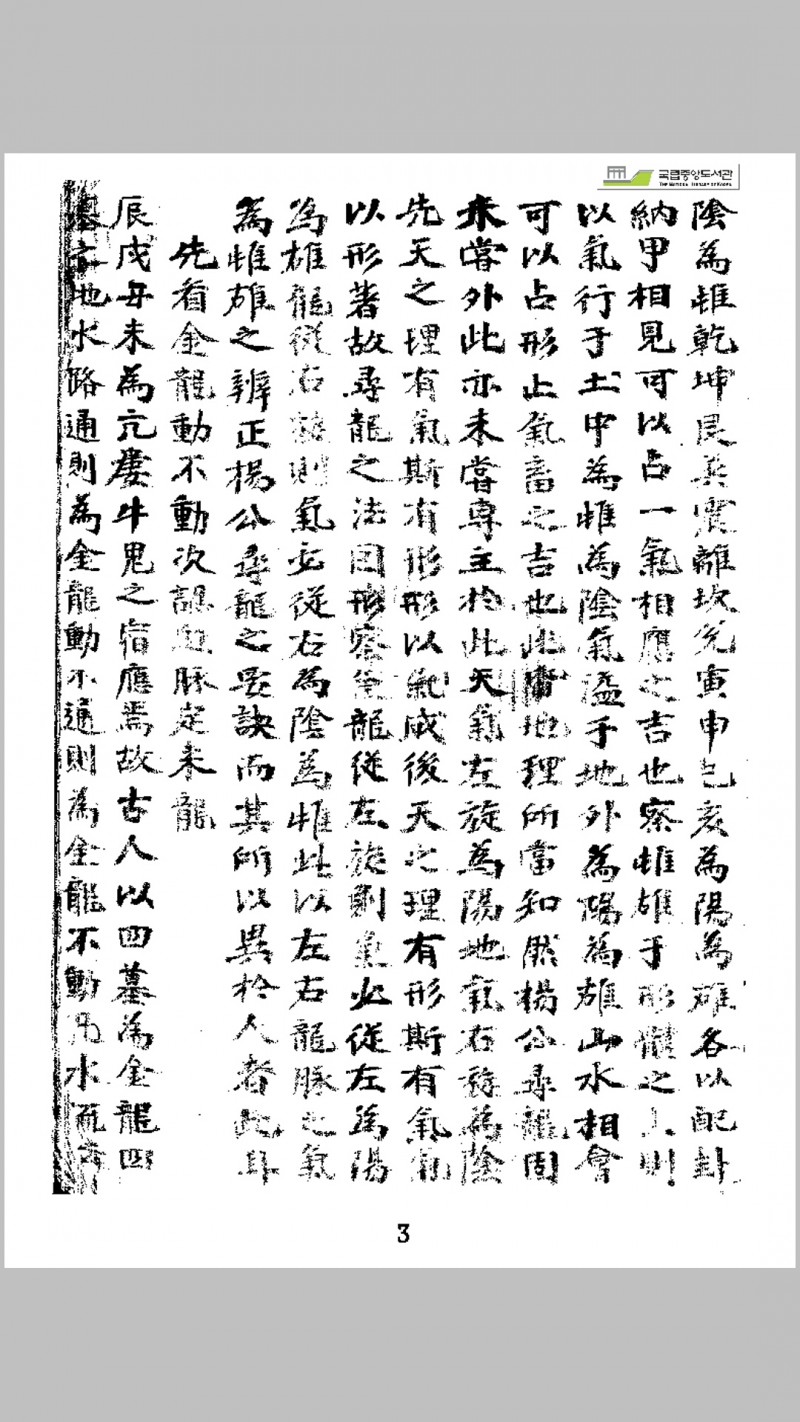 국립중앙도서관
THE NATIONAL LIBRARY OF KOREA
陰為雌乾坤艮巽震離坎兌寅申巳亥為陽為雄各以配卦
納甲相見可以占一氣相應之吉也察雌雄于形體之上則
以氣行于土中為雌為陰氣溢于地外為陽為雄山水相會
可以占形止氣畜之吉也此皆地理所當知然楊公尋龍固
未嘗外此亦未嘗專主於此天氣左旋為陽地氣右旋為陰
先天之理有氣斯有形形以氣成後天之理有形斯有氣氣
以形著故尋龍之法因形察氣龍從左旋則氣必從左為陽
為雄龍從右旋則氣必從右為陰為雌此以左右龍脉之氣
為雌雄之辨正楊公尋龍之要訣而其所以異於人者此耳
先看金龍動不動次認血脉定來龍
辰戌丑未為亢婁牛鬼之宿應焉故古人以四墓為金龍四
墓之地水路通則為金龍動不通則為金龍不動凡水流
3